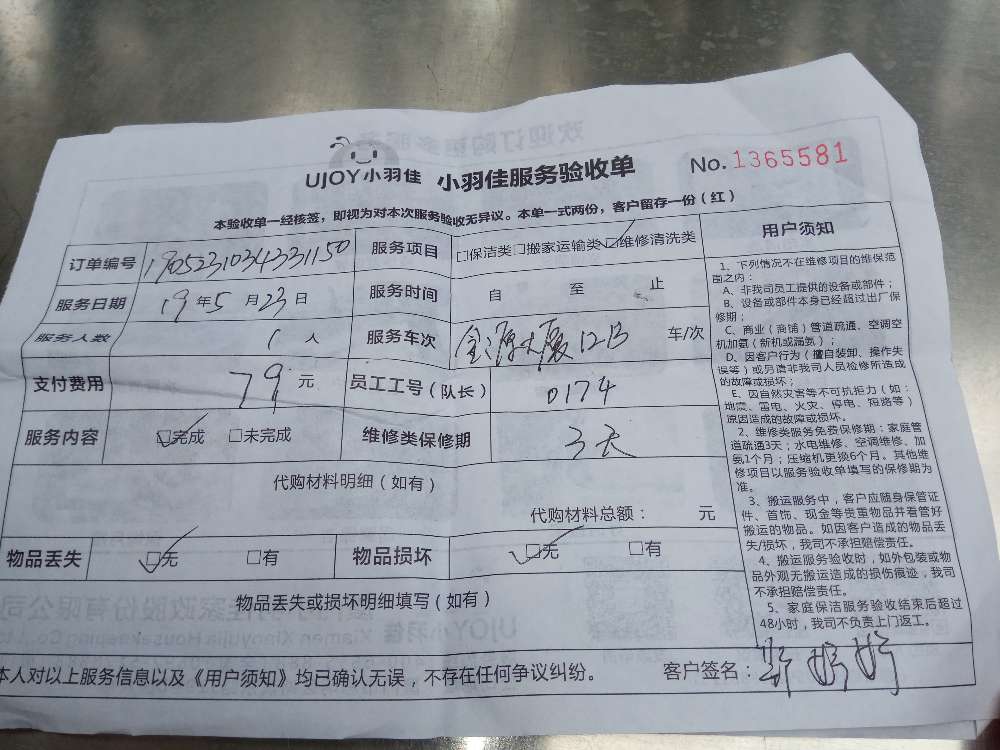 UJOY小羽佳 小羽佳服务验收单 No.1365581
本验收单一经核签，即视为对本次服务验收无异议。本单一式两份，客户留存一份（红）
订单编号 1905231034331150 服务项目 □保洁类□搬家运输类☑维修清洗类
服务日期 19年5月23日 服务时间 自 至 止
服务人数 1人 服务车次 金源大厦12B 车/次
支付费用 79元 员工工号（队长） 0174
服务内容 ☑完成 □未完成 维修类保修期 3天
代购材料明细（如有）
代购材料总额： 元
物品丢失 ☑无 □有 物品损坏 ☑无 □有
物品丢失或损坏明细填写（如有）
用户须知
1、下列情况不在维修项目的维保范
围之内：
A、非我司员工提供的设备或部件；
B、设备或部件本身已经超过出厂保
修期；
C、商业（商铺）管道疏通、空调空
机加氨（新机或漏氨）；
D、因客户行为（擅自装卸、操作失
误等）或另请非我司人员检修所造成
的故障或损坏；
E、因自然灾害等不可抗拒力（如：
地震、雷电、火灾、停电、短路等）
原因造成的故障或损坏。
2、维修类服务免费保修期：家庭管
道疏通3天；水电维修、空调维修、加
氨1个月；压缩机更换6个月。其他维
修项目以服务验收单填写的保修期为
准。
3、搬运服务中，客户应随身保管证
件、首饰、现金等贵重物品并看管好
搬运的物品。如因客户造成的物品丢
失/损坏，我司不承担赔偿责任。
4、搬运服务验收时，如外包装或物
品外观无搬运造成的损伤痕迹，我司
不承担赔偿责任。
5、家庭保洁服务验收结束后超过
48小时，我司不负责上门返工。
本人对以上服务信息以及《用户须知》均已确认无误，不存在任何争议纠纷。 客户签名：